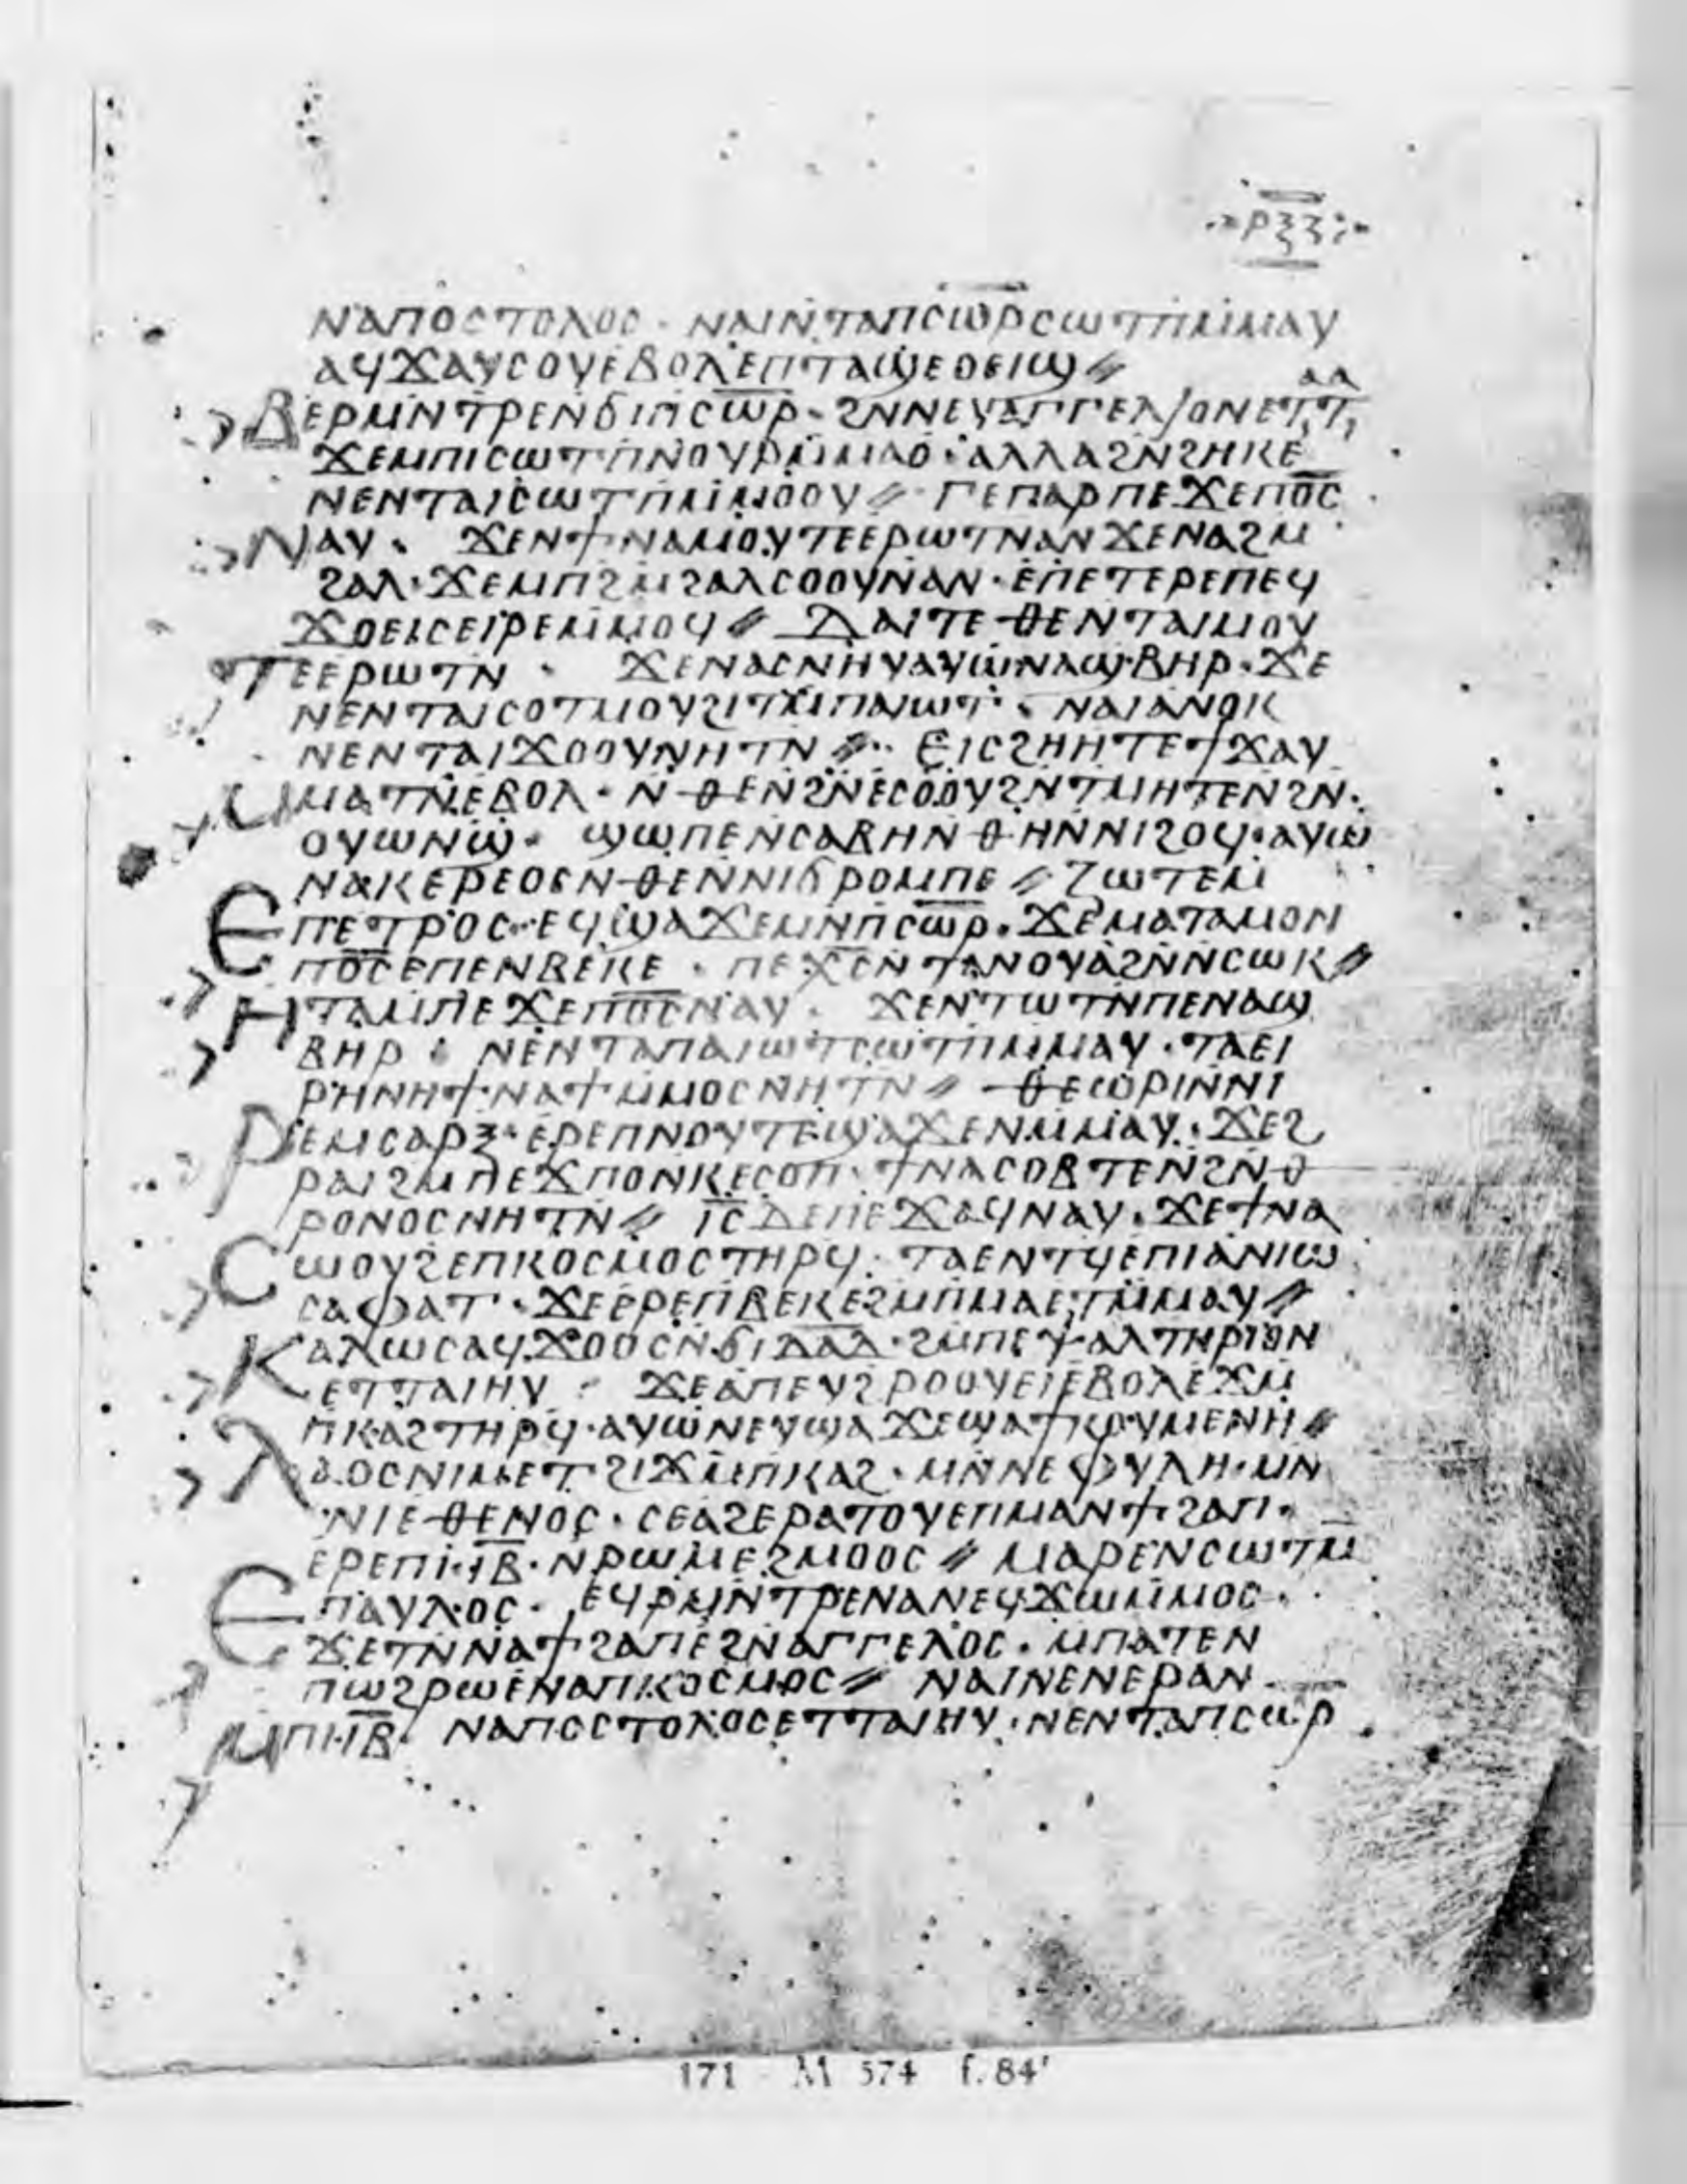 ⲣⲝⲍ
ⲛⲁⲡⲟⲥⲧⲟⲗⲟⲥ · ⲛⲁⲓⲛⲧⲁⲡⲥⲱⲣⲥⲱⲧⲡⲙⲙⲁⲩ
ⲁϥϫⲁⲩⲥⲟⲩⲉⲃⲟⲗⲉⲡⲧⲁϣⲉⲟⲉⲓϣ⳽
Ⲃⲉⲣⲙⲛⲧⲣⲉⲛϭⲓⲡⲥⲱⲣ · ϩⲛⲛⲉⲩⲁⲅⲅⲉⲗⲓⲟⲛⲉⲧⲧ
ϫⲉⲙⲡⲓⲥⲱⲧⲡⲛⲟⲩⲣⲙⲙⲁⲟ · ⲁⲗⲗⲁϩⲛϩⲏⲕⲉ
ⲛⲉⲛⲧⲁⲓⲥⲱⲧⲡⲙⲙⲟⲟⲩ⳽ ⲅⲉⲡⲁⲣⲡⲉϫⲉⲡⲟ̅ⲥ̅
Ⲛⲁⲩ · ϫⲉⲛϯⲛⲁⲙⲟⲩⲧⲉⲉⲣⲱⲧⲛⲁⲛϫⲉⲛⲁϩⲙ
ϩⲁⲗ · ϫⲉⲙⲡϩⲙϩⲁⲗⲥⲟⲟⲩⲛⲁⲛ · ⲉⲡⲉⲧⲉⲣⲉⲡⲉϥ
ϫⲟⲉⲓⲥⲉⲓⲣⲉⲙⲙⲟϥ⳽ ⲇⲁⲓⲧⲉⲑⲉⲛⲧⲁⲓⲙⲟⲩ
Ⲧⲉⲉⲣⲱⲧⲛ · ϫⲉⲛⲁⲥⲛⲏⲩⲁⲩⲱⲛⲁϣⲃⲏⲣ · ϫⲉ
ⲛⲉⲛⲧⲁⲓⲥⲟⲧⲙⲟⲩϩⲓⲧⲙⲡⲁⲓⲱⲧ · ⲛⲁⲓⲁⲛⲟⲕ
ⲛⲉⲛⲧⲁⲓϫⲟⲟⲩⲛⲏⲧⲛ⳽ ⲉⲓⲥϩⲏⲏⲧⲉϯϫⲁⲩ
Ⲙⲙⲁⲧⲛⲉⲃⲟⲗ · ⲛⲑⲉⲛϩⲛⲉⲥⲟⲟⲩϩⲛⲧⲙⲏⲧⲉⲛϩⲛ
ⲟⲩⲱⲛϣ · ϣⲱⲡⲉⲛⲥⲁⲃⲏⲛⲑⲏⲛⲛⲓϩⲟϥ · ⲁⲩⲱ
ⲛⲁⲕⲉⲣⲉⲟⲥⲛⲑⲉⲛⲛⲓϭⲣⲟⲙⲡⲉ⳽ ⲍⲱⲧⲉⲙ
Ⲉⲡⲉⲧⲣⲟⲥ · ⲉϥϣⲁϫⲉⲙⲛⲡⲥⲱⲣ · ϫⲉⲙⲁⲧⲁⲙⲟⲛ
ⲡⲟ̅ⲥ̅ⲉⲡⲉⲛⲃⲉⲕⲉ · ⲡⲉϫⲉⲛⲧⲁⲛⲟⲩⲁϩⲛⲛⲥⲱⲕ⳽
Ⲏⲧⲁⲙⲡⲉϫⲉⲡⲟ̅ⲥ̅ⲛⲁⲩ · ϫⲉⲛⲧⲱⲧⲛⲡⲉⲛⲁϣ
ⲃⲏⲣ · ⲛⲉⲛⲧⲁⲡⲁⲓⲱⲧⲥⲱⲧⲡⲙⲙⲁⲩ · ⲧⲁⲉⲓ
ⲣⲏⲛⲏϯⲛⲁϯⲙⲙⲟⲥⲛⲏⲧⲛ⳽ ⲑⲉⲱⲣⲓⲛⲛⲓ
Ⲣⲉⲙⲥⲁⲣⲝ · ⲉⲣⲉⲡⲛⲟⲩⲧⲉϣⲁϫⲉⲛⲙⲙⲁⲩ · ϫⲉϩ
ⲣⲁⲓϩⲙⲡⲉϫⲡⲟⲛⲕⲉⲥⲟⲡ · ϯⲛⲁⲥⲟⲃⲧⲉⲛϩⲛⲑ
ⲣⲟⲛⲟⲥⲛⲏⲧⲛ⳽ ⲓ̅ⲥ̅ⲇⲉⲡⲉϫⲁϥⲛⲁⲩ · ϫⲉϯⲛⲁ
Ⲥⲱⲟⲩϩⲉⲡⲕⲟⲥⲙⲟⲥⲧⲏⲣϥ · ⲧⲁⲉⲛⲧϥⲉⲡⲓⲁⲛⲓⲱ
ⲥⲁⲫⲁⲧ · ϫⲉⲉⲣⲉⲡⲃⲉⲕⲉϩⲙⲡⲙⲁⲉⲧⲙⲙⲁⲩ⳽
Ⲕⲁⲗⲱⲥⲁϥϫⲟⲟⲥⲛϭⲓⲇ̅ⲁ̅ⲇ̅ · ϩⲙⲡⲉⲯⲁⲗⲧⲏⲣⲓⲟⲛ
ⲉⲧⲧⲁⲓⲏⲩ · ϫⲉⲁⲡⲉⲩϩⲣⲟⲟⲩⲉⲓⲉⲃⲟⲗⲉϫⲙ
ⲡⲕⲁϩⲧⲏⲣϥ · ⲁⲩⲱⲛⲉⲩϣⲁϫⲉϣⲁϯⲕⲟⲩⲙⲉⲛⲏ⳽
Ⲗⲁⲟⲥⲛⲓⲙⲉⲧϩⲓϫⲙⲡⲕⲁϩ · ⲙⲛⲛⲉⲫⲩⲗⲏ · ⲙⲛ
ⲛⲓⲉⲑⲉⲛⲟⲥ · ⲥⲉⲁϩⲉⲣⲁⲧⲟⲩⲉⲡⲙⲁⲛϯϩⲁⲡ ·
ⲉⲣⲉⲡⲓⲓ̅ⲃ̅ · ⲛⲣⲱⲙⲉϩⲙⲟⲟⲥ⳽ ⲙⲁⲣⲉⲛⲥⲱⲧⲙ
Ⲉⲡⲁⲩⲗⲟⲥ · ⲉϥⲣⲙⲛⲧⲣⲉⲛⲁⲛⲉϥϫⲱⲙⲙⲟⲥ ·
ϫⲉⲧⲛⲛⲁϯϩⲁⲡⲉϩⲛⲁⲅⲅⲉⲗⲟⲥ · ⲙⲡⲁⲧⲉⲛ
ⲡⲱϩⲣⲱⲉⲛⲁⲡⲕⲟⲥⲙⲟⲥ⳽ ⲛⲁⲓⲛⲉⲛⲉⲣⲁⲛ
Ⲙⲡⲓⲓ̅ⲃ̅ · ⲛⲁⲡⲟⲥⲧⲟⲗⲟⲥⲉⲧⲧⲁⲓⲏⲩ · ⲛⲉⲛⲧⲁⲡⲥⲱⲣ
171 M 574 f. 84ʳ